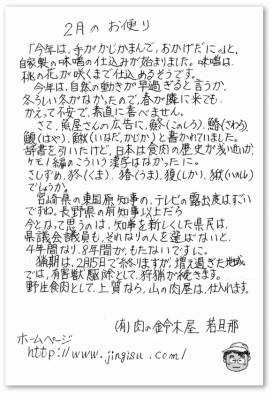 2月の お便り
「今年は、手がかじかまんで、おかげだに。」と、
自家製の味噌の仕込みが始まりました。味噌は、
桃の花が咲くまで仕込めるそうです。
今年は、自然の動きが早過ぎると言うか、
冬らしい冬がなかったので、春が庭に来ても、
かえって不安で、素直に喜べません。
さて、魚屋さんの広告に、鮗(このしろ)、鰆(さわら)
鰀(はや)、鰍(いなだ、かじか)と書かれていました。
辞書を引いたけど、日本は食肉の歴史が浅いせいか、
ケモノ編のこういう漢字はなかったに。
さしずめ、狪(くま)、猪(うま)、
でしょうか。
宮崎県の東国原知事の、テレビの露出度はすごい
ですね。長野県の前知事以上だら
今となって思うのは、知事を新しくした県民は、
県議会議員も、それなりの人を選ばないと、
4年間なり、8年間が、もたないですに。
猟期は、2月15日で終りますが、増え過ぎた地域
では、有害獣駆除として、狩猟が続きます。
野生食肉として、上質なら、山の肉屋は、仕入れます。
(有)肉の鈴木屋 若旦那
ホームページ
http://www.jingisu.com/